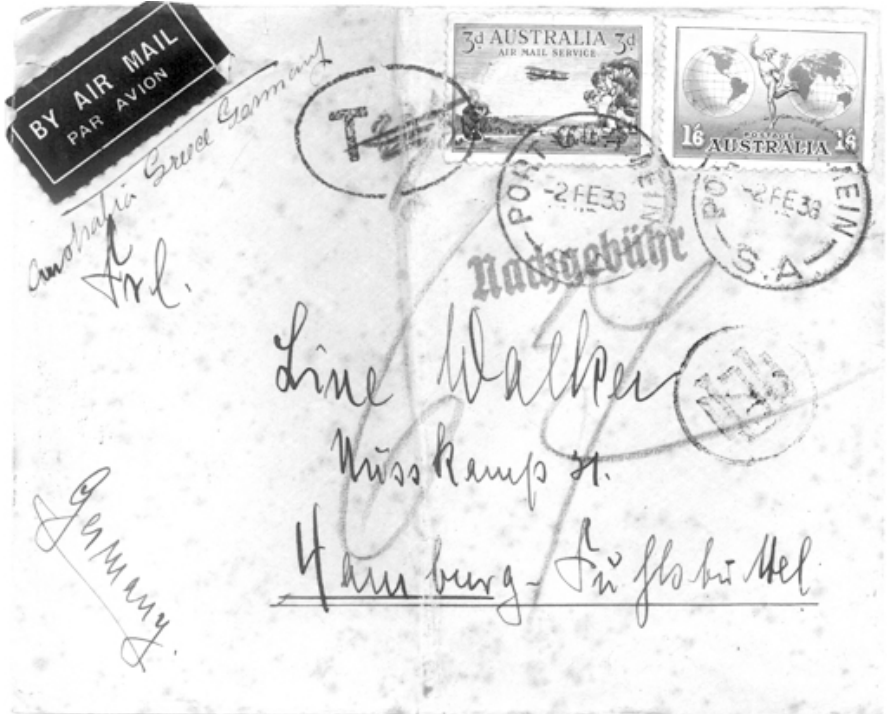 BY AIR MAIL
PAR AVION
Australia Greece Germany
3d AUSTRALIA 3d
AIR MAIL SERVICE
POSTAGE
1/6 AUSTRALIA 1/6
T
PORT EIN
-2 FE 38
PO EIN
-2 FE 38
S.A
Nachgebühr
Frl.
Line Walker
Nusskamp 21.
Hamburg-Fuhlsbüttel
Germany.